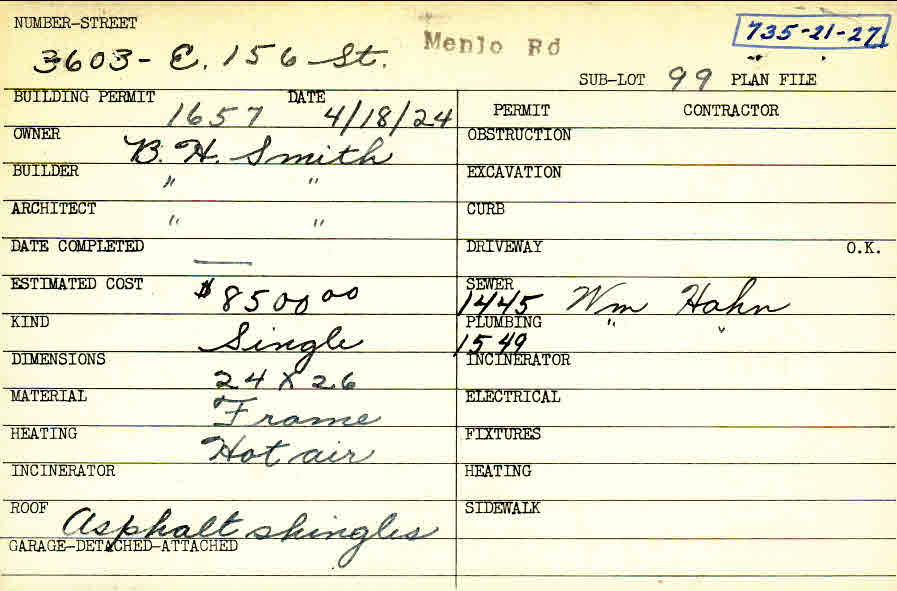 NUMBER-STREET
3603 - E. 156 St.
Menlo Rd
735-21-27
SUB-LOT 99 PLAN FILE
BUILDING PERMIT 1657 DATE 4/18/24
PERMIT CONTRACTOR
OWNER B. H. Smith
OBSTRUCTION
BUILDER " "
EXCAVATION
ARCHITECT " "
CURB
DATE COMPLETED —
DRIVEWAY O.K.
ESTIMATED COST $8500.00
SEWER 1445 Wm Hahn
KIND Single
PLUMBING 1549 " "
DIMENSIONS 24 X 26
INCINERATOR
MATERIAL Frame
ELECTRICAL
HEATING Hot air
FIXTURES
INCINERATOR
HEATING
ROOF Asphalt shingles
SIDEWALK
GARAGE-DETACHED-ATTACHED